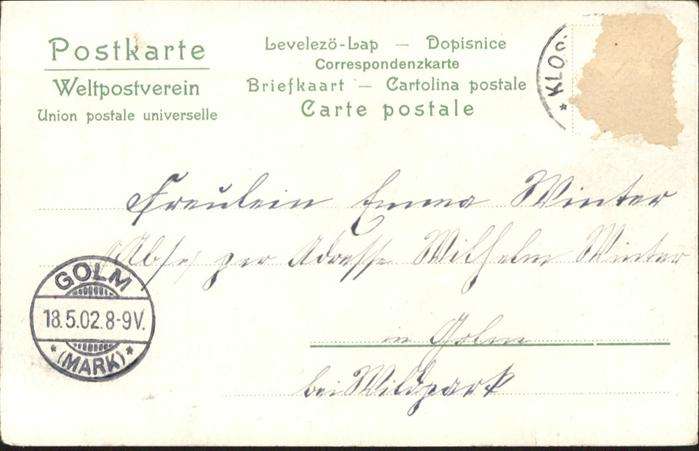 Postkarte
Weltpostverein
Union postale universelle
Levelezö-Lap — Dopisnice
Correspondenzkarte
Briefkaart — Cartolina postale
Carte postale
KLOS
Fräulein Emma Winter
per Adresse Wilhelm Winter
in Golm
bei Wildpark
GOLM
18.5.02.8-9V.
* (MARK) *